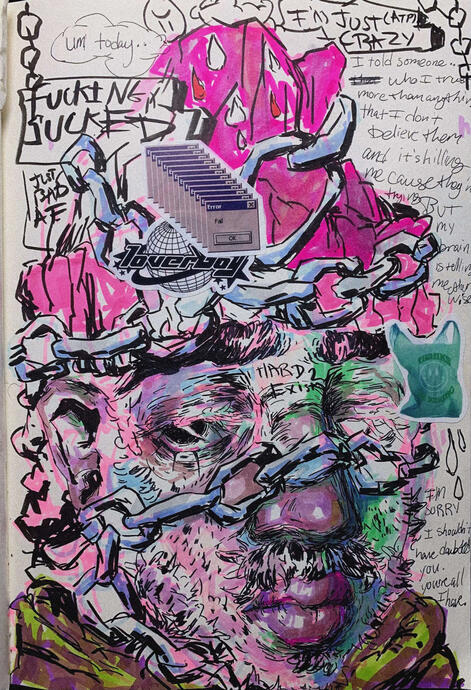 um today..
I'M JUST (ATP)
CRAZY
FUCKING
SUCKED
JUST
BAD
AF
I told someone..
who I trust
more than anything
that I don't
believe them
and it's killing
me cause they
trying
BUT
my
brain
is telling
me other
wise
Error
Fail
OK
loverboy
HARD 2
EXIST
THANKS
I'M
SORRY
I shouldn't
have doubted
you.
you're all
I have.